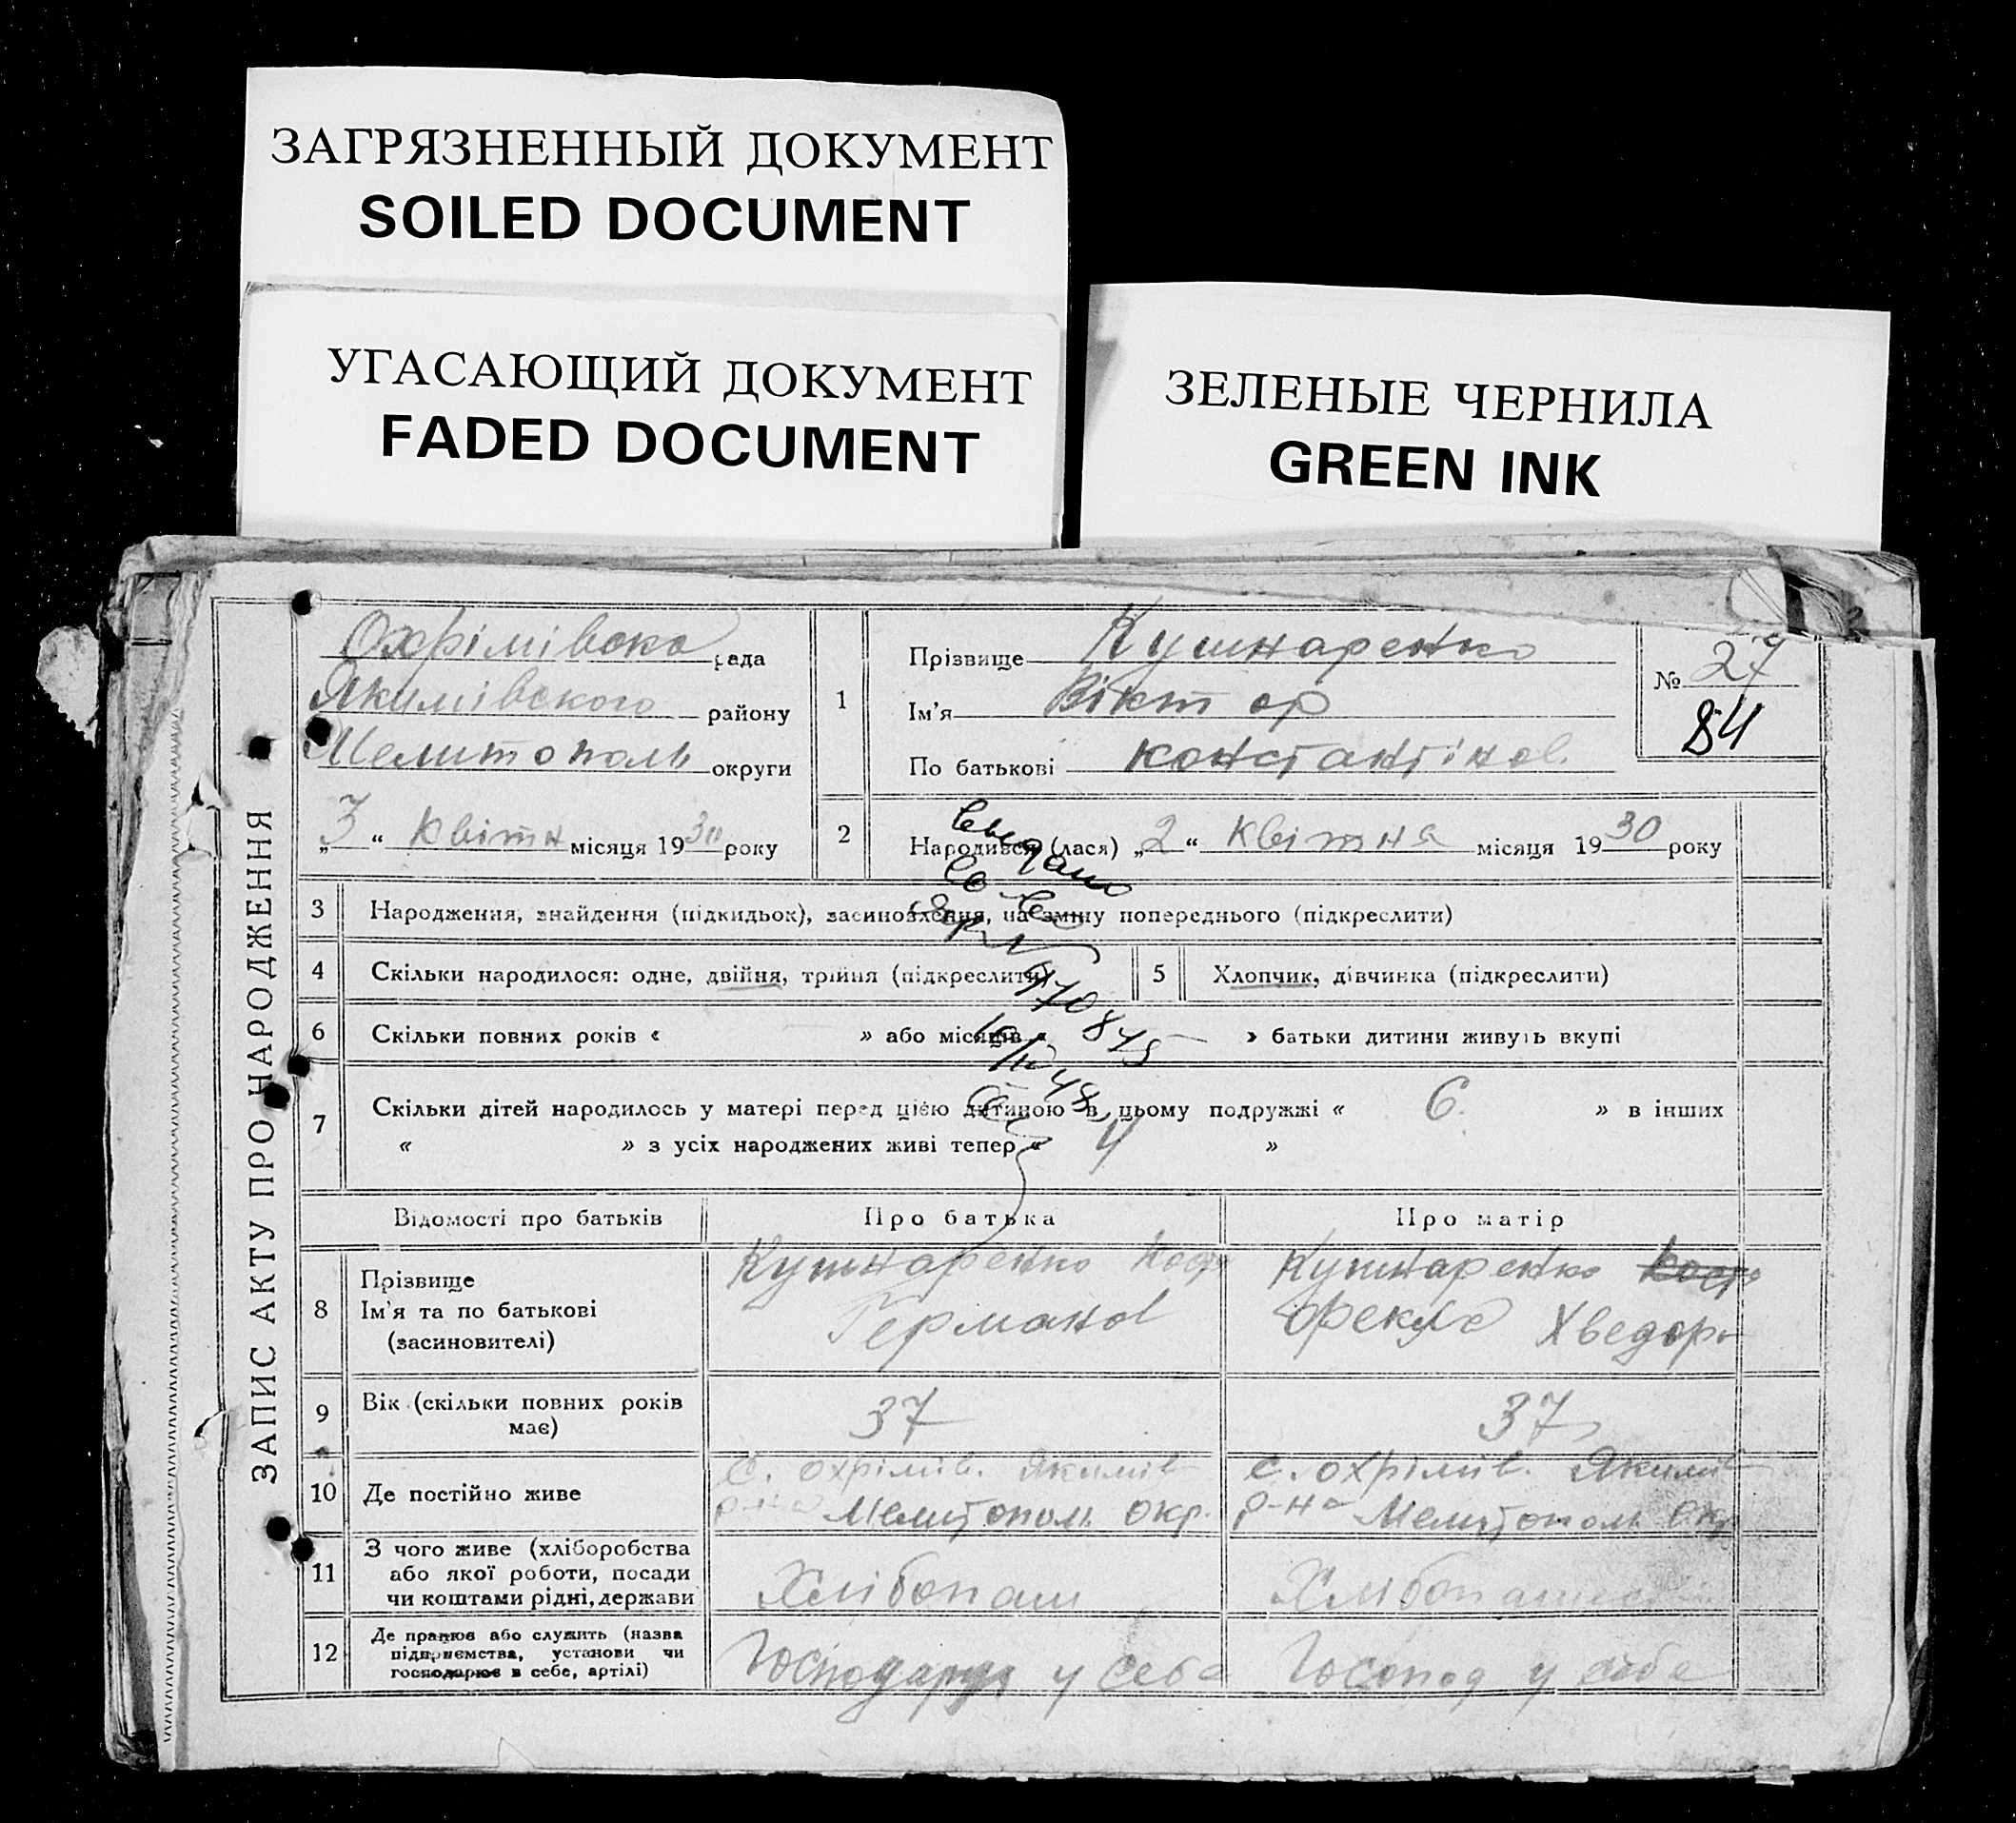 ЗАГРЯЗНЕННЫЙ ДОКУМЕНТ
SOILED DOCUMENT
УГАСАЮЩИЙ ДОКУМЕНТ
FADED DOCUMENT
ЗЕЛЕНЫЕ ЧЕРНИЛА
GREEN INK
ЗАПИС АКТУ ПРО НАРОДЖЕННЯ
Охрімівська рада
Якимівського району
Мелитополь округи
„3“ Квітн місяця 1930 року
1
Прізвище Кушнаренко
Ім'я Віктор
По батькові Константінов.
№ 27
84
2 Народився (лася) „2“ Квітня місяця 1930 року
3 Народження, знайдення (підкидьок), засиновлення, на зміну попереднього (підкреслити)
4 Скільки народилося: одне, двійня, трійня (підкреслити)
5 Хлопчик, дівчинка (підкреслити)
6 Скільки повних років « » або місяців « » батьки дитини живуть вкупі
7 Скільки дітей народилось у матері перед цією дитиною в цьому подружжі « 6. » в інших
« » з усіх народжених живі тепер « 4 »
Відомості про батьків Про батька Про матір
8 Прізвище
Ім'я та по батькові
(засиновителі)
Кушнаренко Кост
Германов
Кушнаренко Кост
Фекла Хведор
9 Вік (скільки повних років має) 37 37
10 Де постійно живе
с. Охрімів. Якимів
р-на Мелитополь окр.
с. Охрімів. Якимів
р-на Мелитополь окр
11 З чого живе (хліборобства
або якої роботи, посади
чи коштами рідні, держави
Хлібопаш
Хлібопаш
12 Де працює або служить (назва
підприємства, установи чи
господарює в себе, артілі)
Господарує у себе
Господ у себе